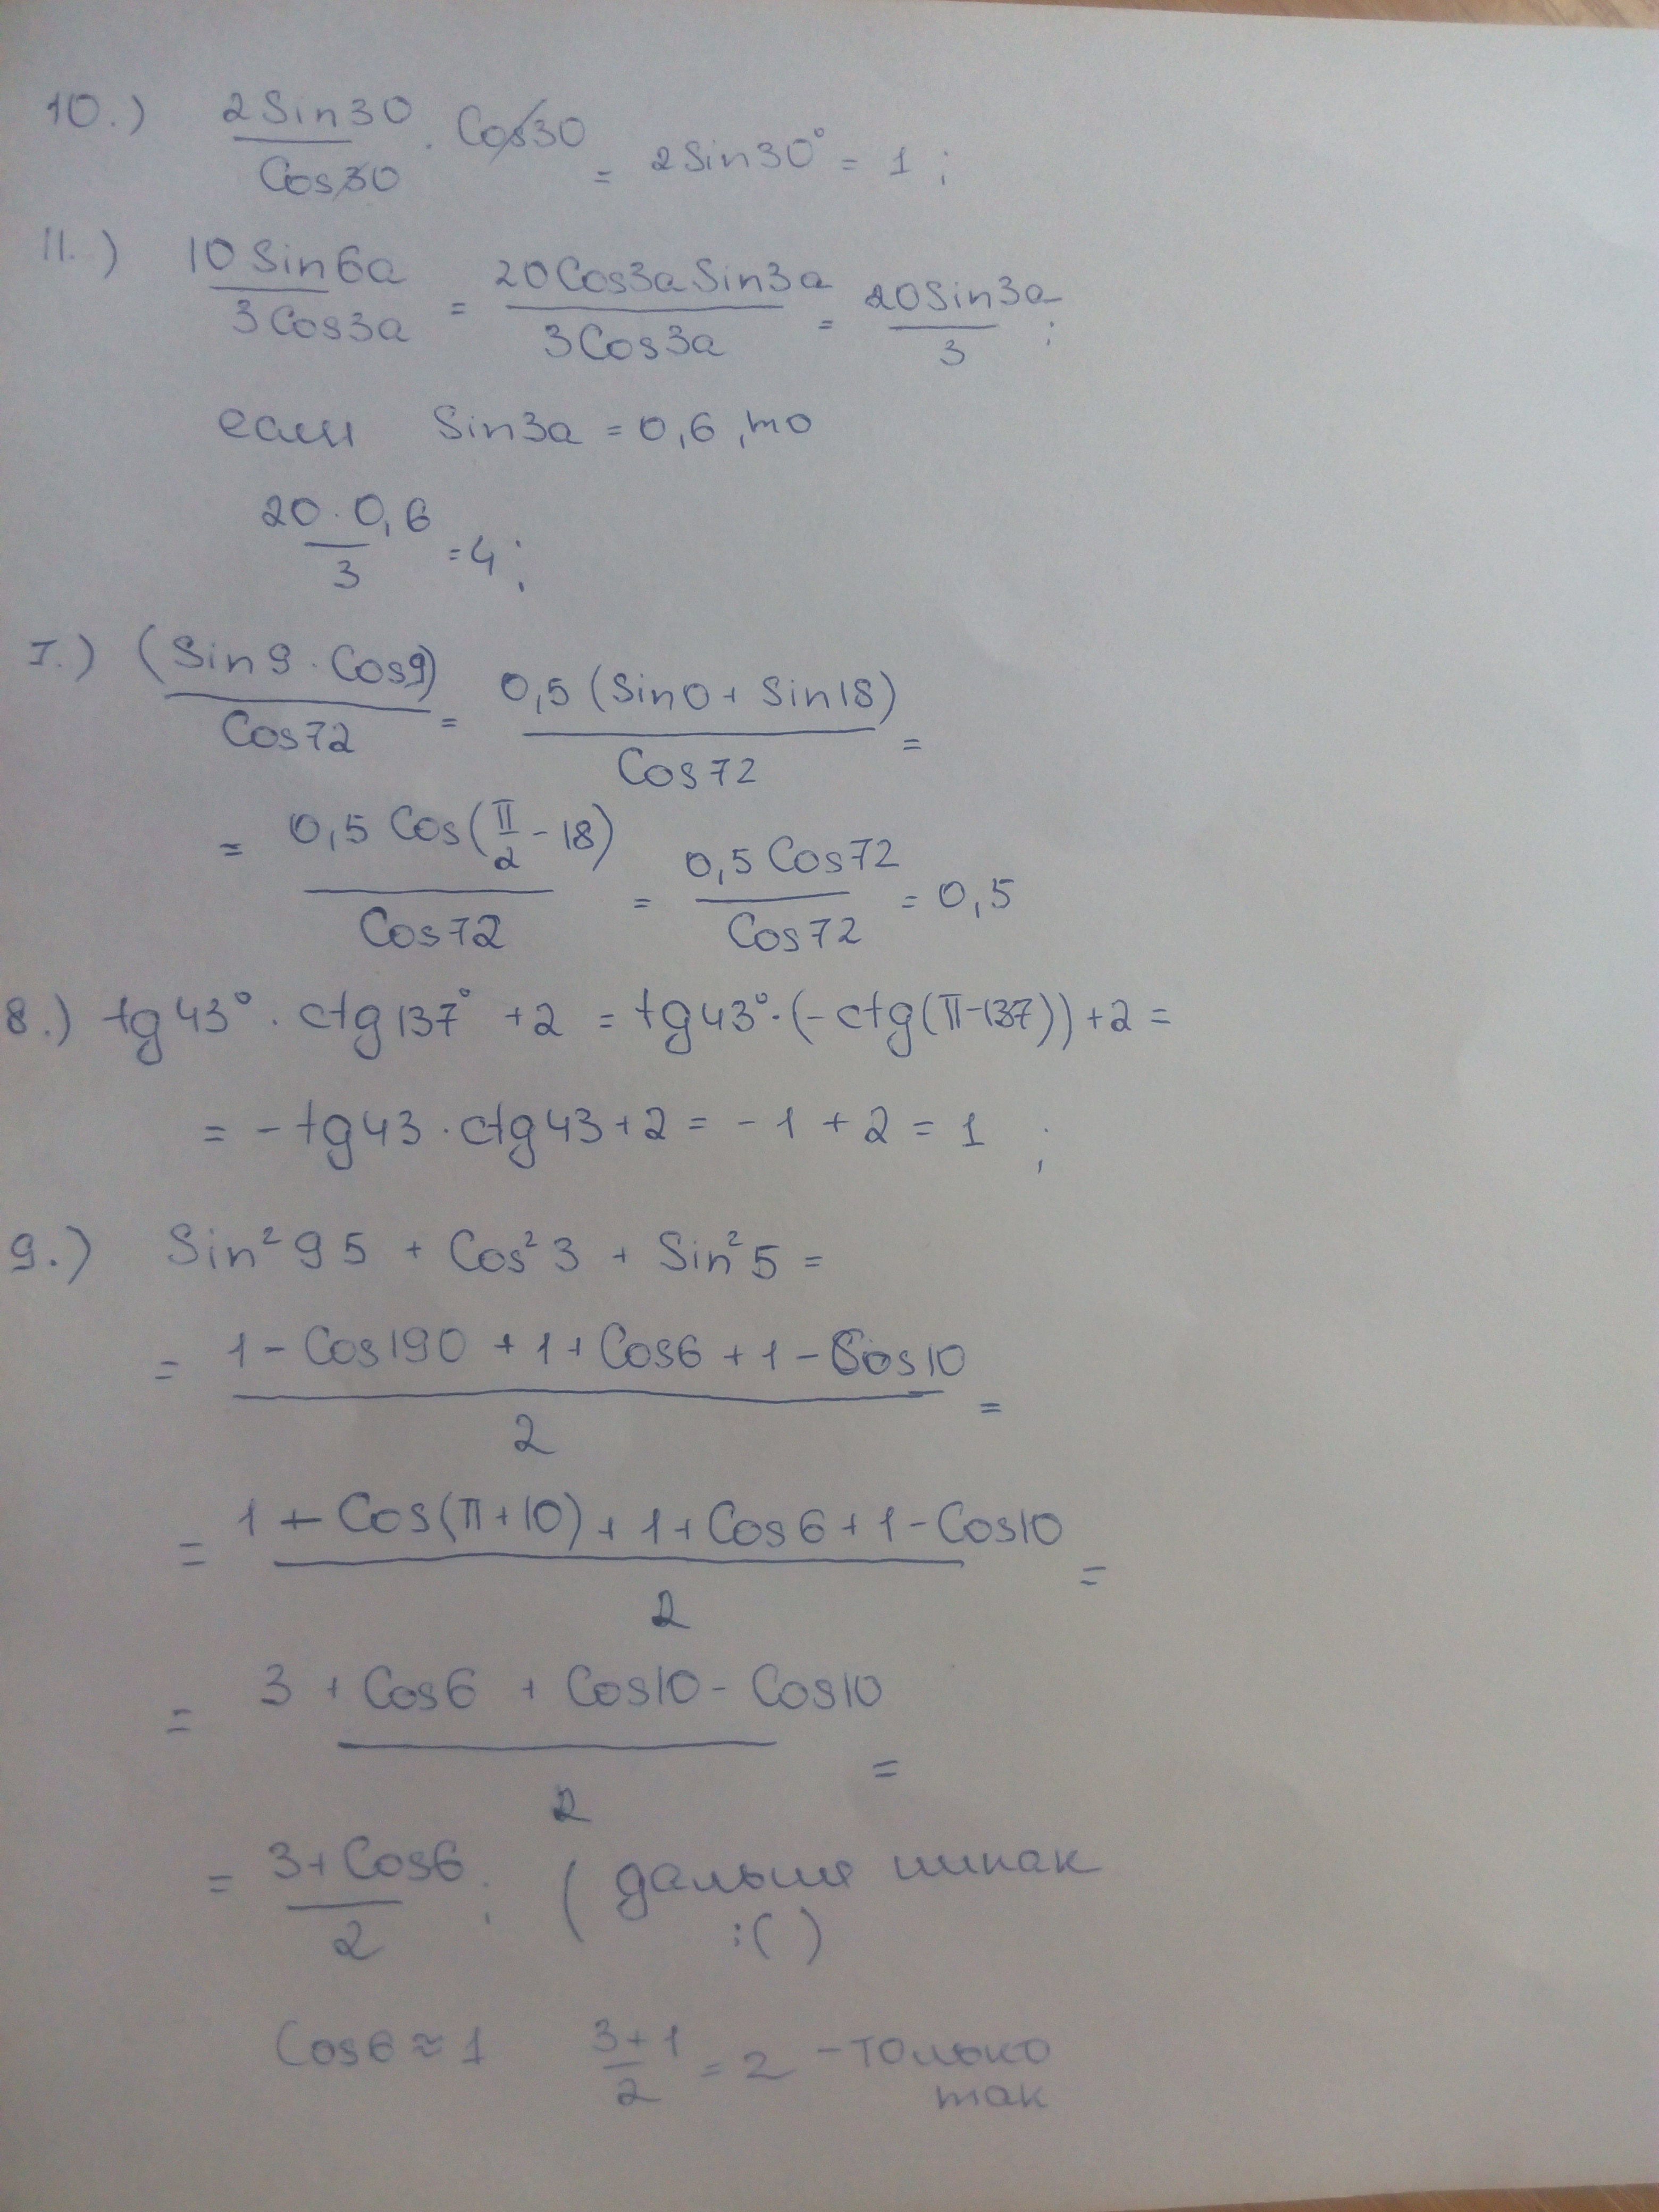 10.) 2Sin30/Cos30 · Cos30 = 2Sin30° = 1 ;
11.) 10Sin6a/3Cos3a = 20Cos3aSin3a/3Cos3a = 20Sin3a/3 ;
если Sin3a = 0,6 , то
20·0,6/3 = 4 ;
I.) (Sin9·Cos9)/Cos72 = 0,5(Sin0 + Sin18)/Cos72 =
= 0,5Cos(π/2 - 18)/Cos72 = 0,5Cos72/Cos72 = 0,5
8.) tg43° · ctg137° + 2 = tg43° · (-ctg(π-137)) + 2 =
= -tg43 · ctg43 + 2 = -1 + 2 = 1 ;
9.) Sin²95 + Cos²3 + Sin²5 =
= 1 - Cos190 + 1 + Cos6 + 1 - Cos10/2 =
= 1 - Cos(π+10) + 1 + Cos6 + 1 - Cos10/2 =
= 3 + Cos6 + Cos10 - Cos10/2 =
= 3 + Cos6/2 ; (дальше никак
:( )
Cos6 ≈ 1 3+1/2 = 2 - только
так